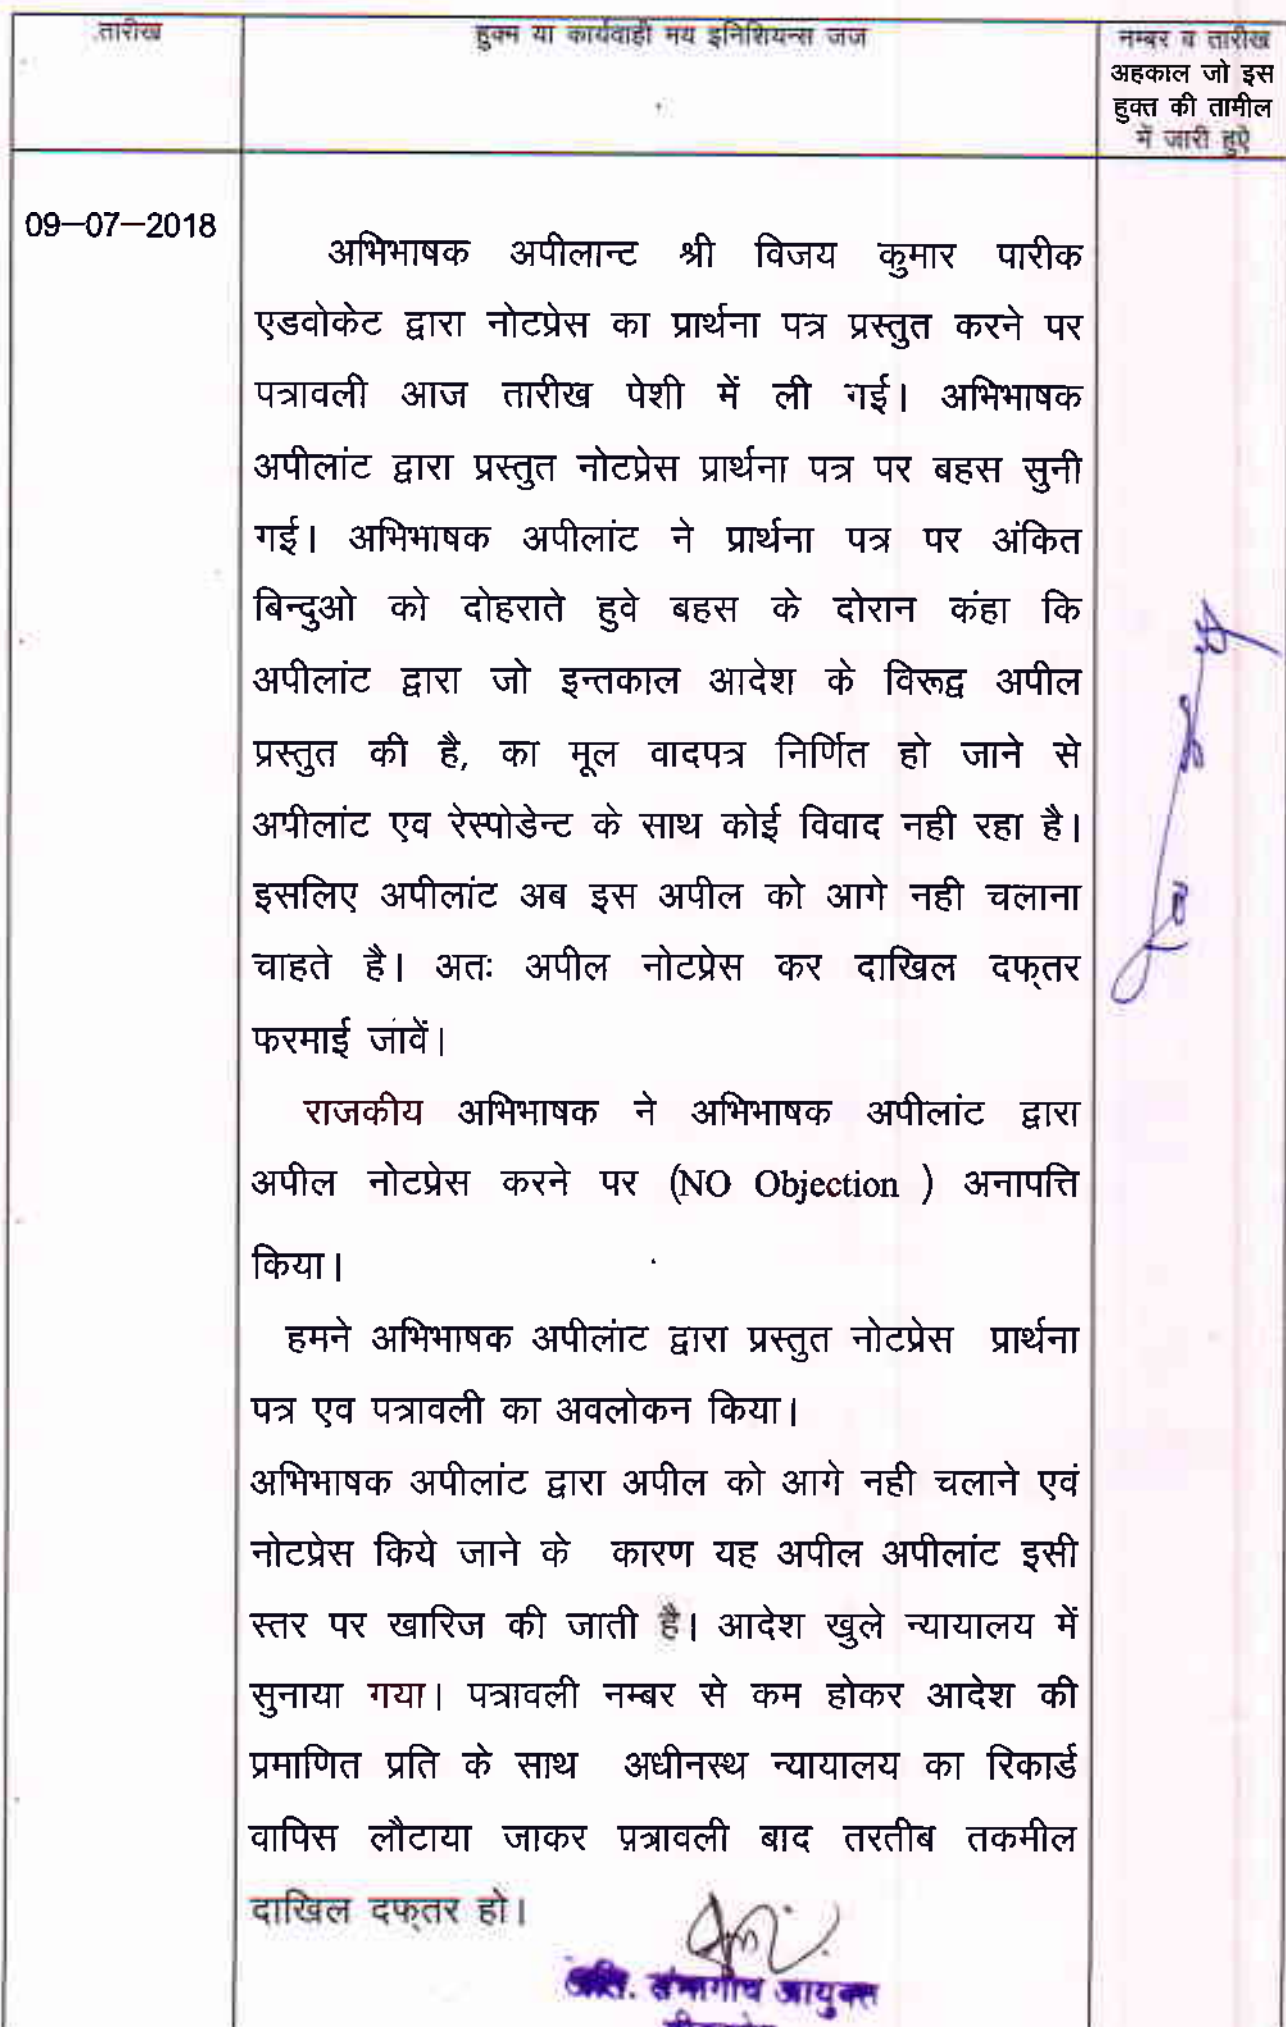 तारीख
हुक्म या कार्यवाही मय इनिशियन्स जज
नम्बर व तारीख
अहकाल जो इस
हुक्त की तामील
में जारी हुऐ
09–07–2018
अभिभाषक अपीलान्ट श्री विजय कुमार पारीक
एडवोकेट द्वारा नोटप्रेस का प्रार्थना पत्र प्रस्तुत करने पर
पत्रावली आज तारीख पेशी में ली गई। अभिभाषक
अपीलांट द्वारा प्रस्तुत नोटप्रेस प्रार्थना पत्र पर बहस सुनी
गई। अभिभाषक अपीलांट ने प्रार्थना पत्र पर अंकित
बिन्दुओ को दोहराते हुवे बहस के दोरान कंहा कि
अपीलांट द्वारा जो इन्तकाल आदेश के विरूद्व अपील
प्रस्तुत की है, का मूल वादपत्र निर्णित हो जाने से
अपीलांट एव रेस्पोडेन्ट के साथ कोई विवाद नही रहा है।
इसलिए अपीलांट अब इस अपील को आगे नही चलाना
चाहते है। अतः अपील नोटप्रेस कर दाखिल दफ्तर
फरमाई जावें।
राजकीय अभिभाषक ने अभिभाषक अपीलांट द्वारा
अपील नोटप्रेस करने पर (NO Objection ) अनापत्ति
किया।
हमने अभिभाषक अपीलांट द्वारा प्रस्तुत नोटप्रेस प्रार्थना
पत्र एव पत्रावली का अवलोकन किया।
अभिभाषक अपीलांट द्वारा अपील को आगे नही चलाने एवं
नोटप्रेस किये जाने के कारण यह अपील अपीलांट इसी
स्तर पर खारिज की जाती है। आदेश खुले न्यायालय में
सुनाया गया। पत्रावली नम्बर से कम होकर आदेश की
प्रमाणित प्रति के साथ अधीनस्थ न्यायालय का रिकार्ड
वापिस लौटाया जाकर प़त्रावली बाद तरतीब तकमील
दाखिल दफ्तर हो।
अति. संभागीय आयुक्त